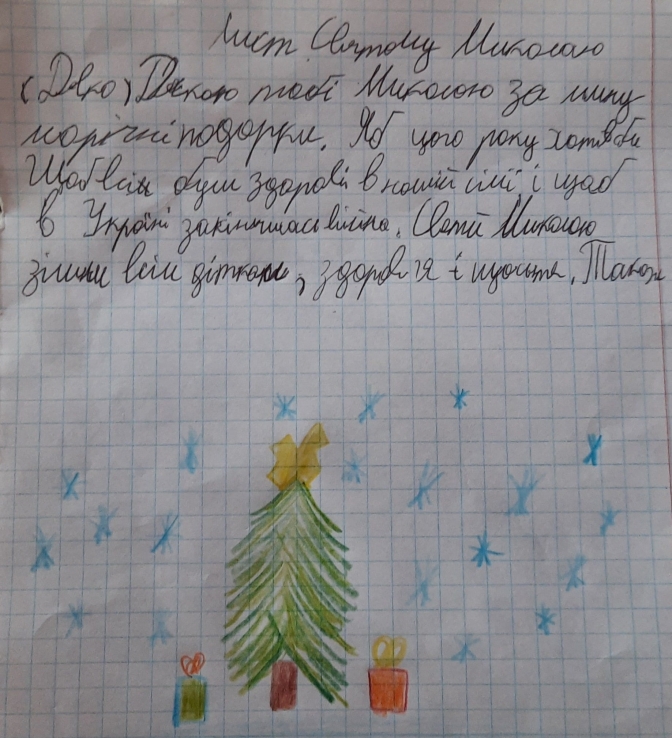 Лист Святому Миколаю
(Дяко) Дякою тобі Миколою за мину
норічні подорки. Яб цього року хотів би
Щоб всі були здорові в нашій сімї і щоб
в Україні закінчилась війна. Святий Миколаю
зішли всім діткам, здоров'я і щастя. Також